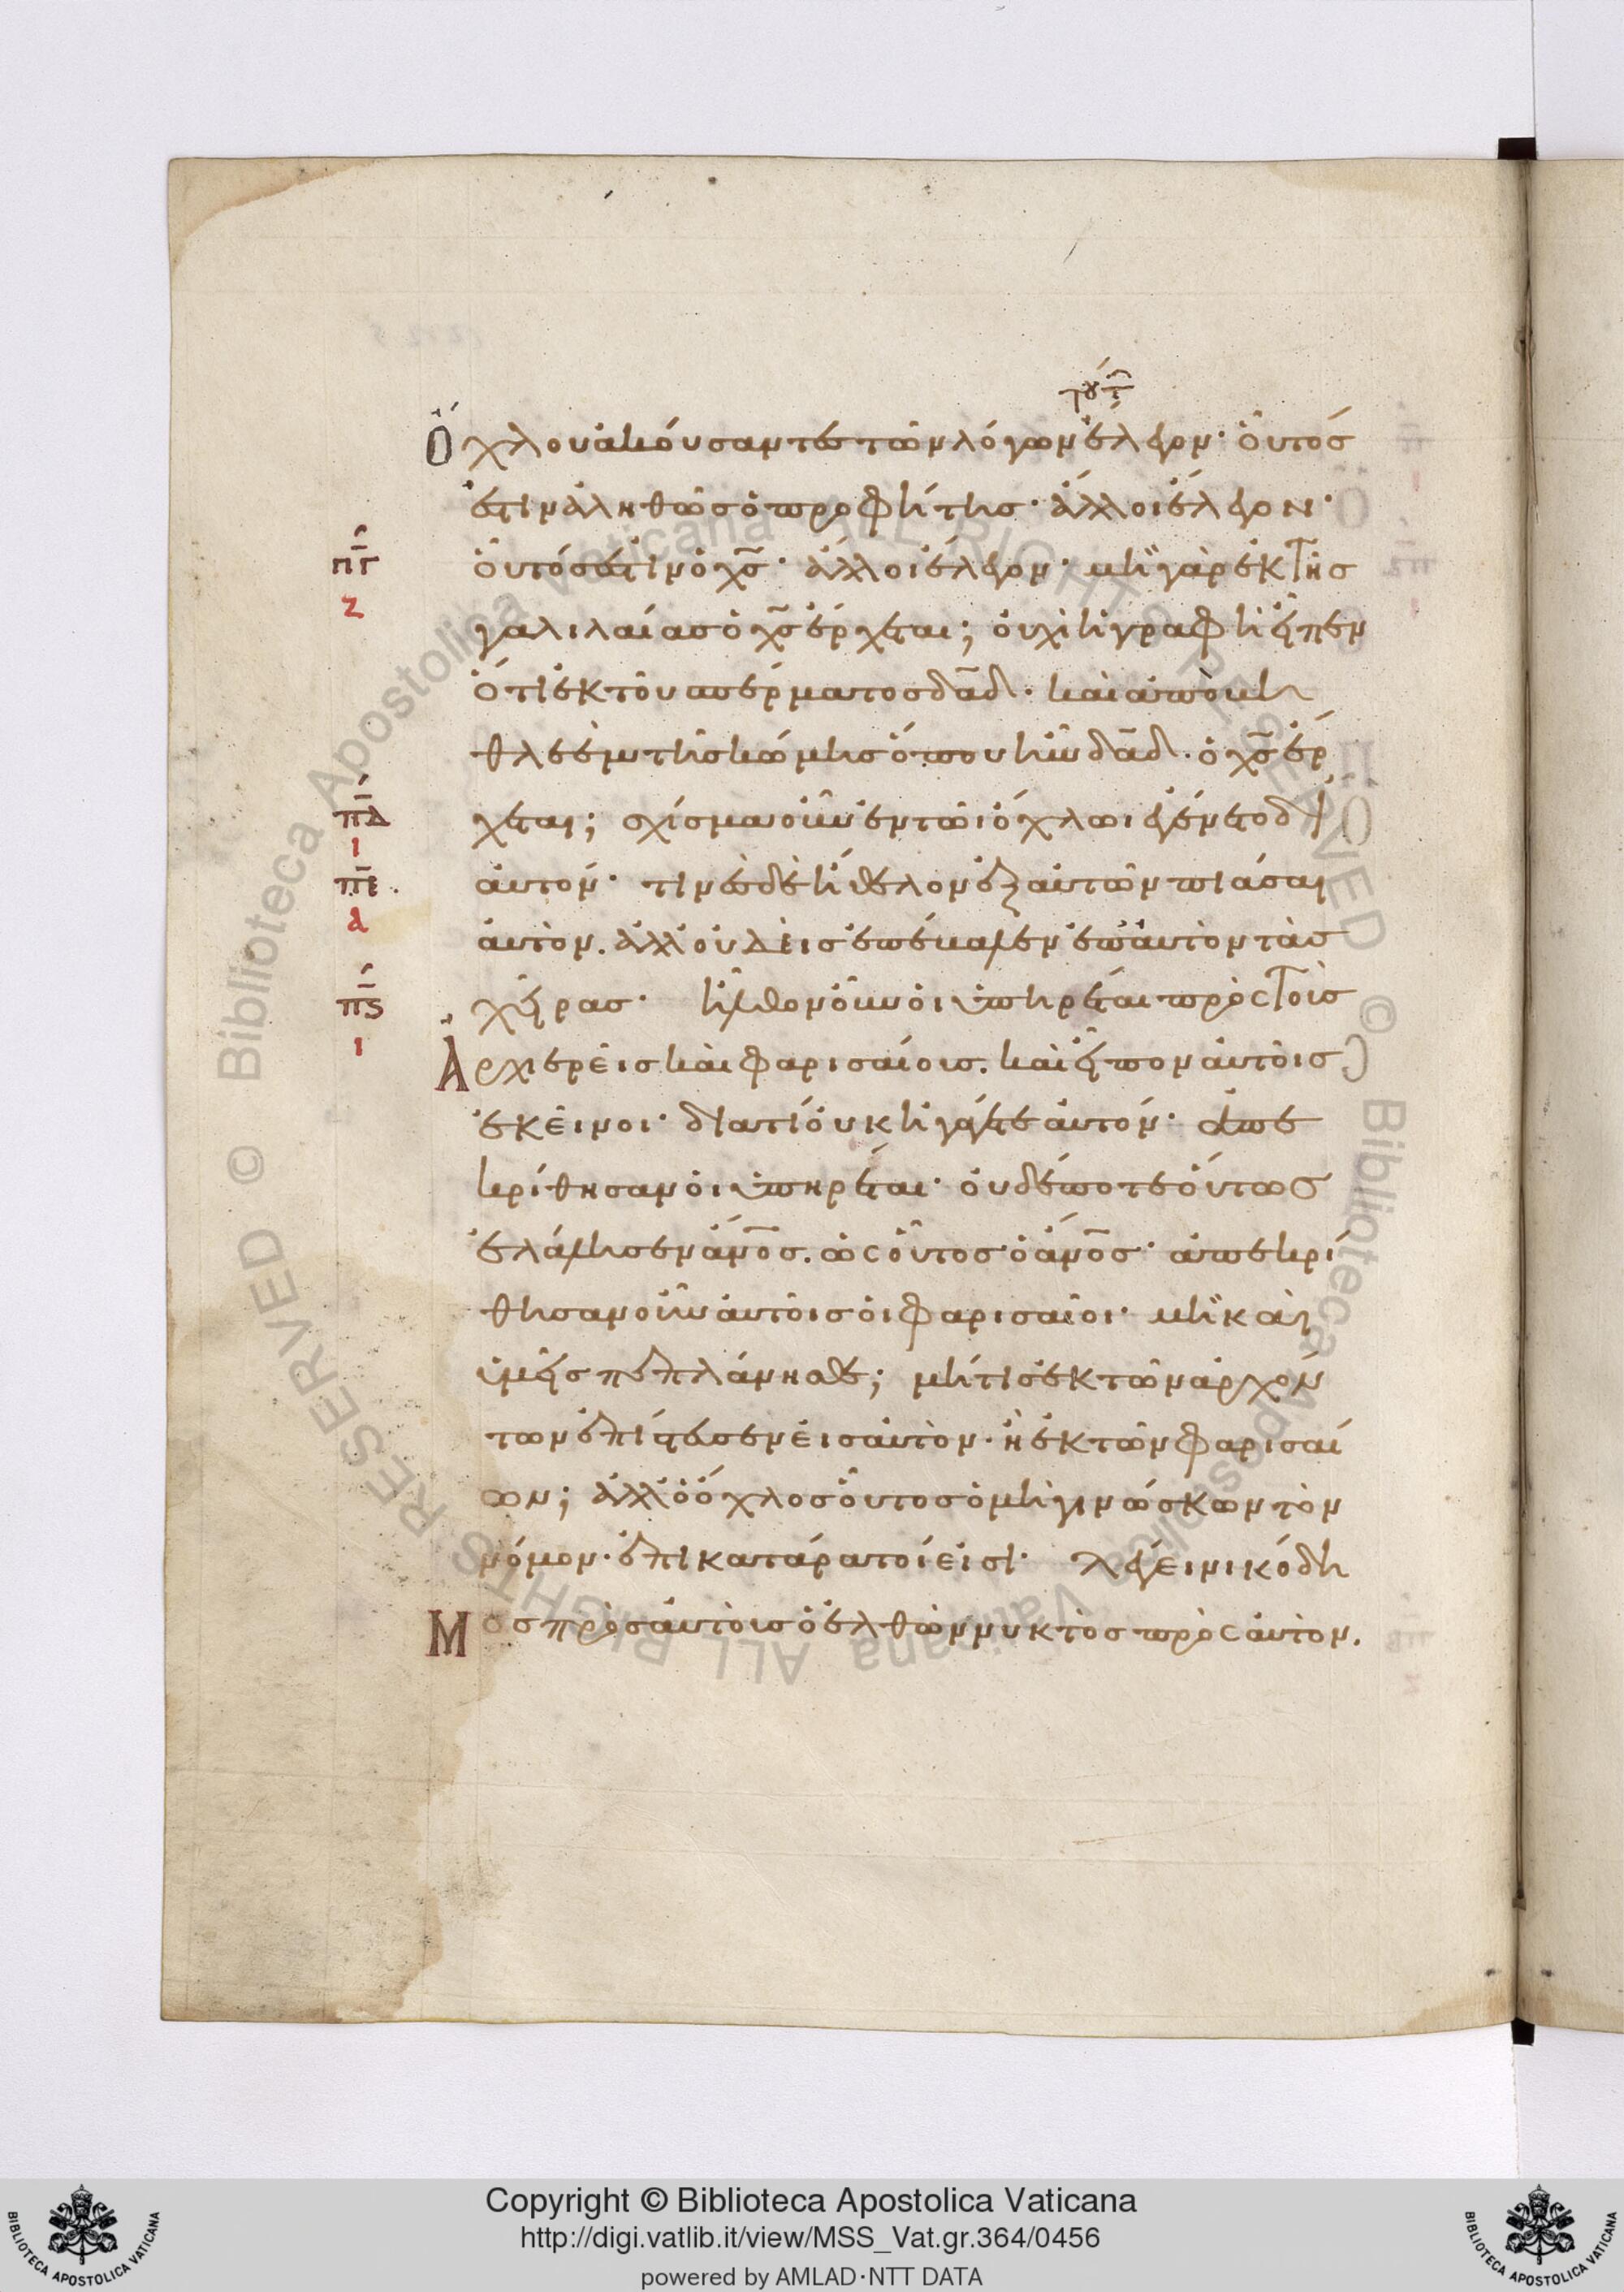 τούτ
Ὄχλου ἀκούσαντες τῶν λόγων ἔλεγον· οὗτός
ἐστιν ἀληθῶς ὁ προφήτης· ἄλλοι ἔλεγον·
πγ οὗτός ἐστιν ὁ χς· ἄλλοι ἔλεγον· μὴ γὰρ ἐκ τῆς
ζ γαλιλαίας ὁ χς ἔρχεται; οὐχὶ ἡ γραφὴ εἶπεν
ὅτι ἐκ τοῦ σπέρματος δαδ· καὶ ἀπὸ μη
θλεὲμ τῆς κώμης ὅπου ἦν δαδ. ὁ χς ἔρ
πδ χεται; σχίσμα οὖν ἐν τῶι ὄχλωι ἐγένετο δι
ι
πε αὐτόν· τινὲς δὲ ἤθελον ἐξ αὐτῶν πιάσαι
α αὐτὸν. ἀλλ' οὐδεὶς ἐπέβαλεν ἐπ' αὐτὸν τὰς
πς χεῖρας· ἦλθον οὖν οἱ ὑπηρέται πρὸς τοὺς
ι Ἀρχιερεῖς καὶ φαρισαίους. καὶ εἶπον αὐτοῖς
ἐκεῖνοι· διατί οὐκ ἠγάγετε αὐτόν· ἀπε
κρίθησαν οἱ ὑπηρέται· οὐδέποτε οὕτως
ἐλάλησεν ἄνος. ὡς οὗτος ὁ ἄνος· ἀπεκρί
θησαν οὖν αὐτοῖς οἱ φαρισαῖοι· μὴ καὶ
ὑμεῖς πεπλάνησθε; μή τις ἐκ τῶν ἀρχόν
των ἐπίστευσεν εἰς αὐτὸν· ἢ ἐκ τῶν φαρισαί
ων; ἀλλ' ὁ ὄχλος οὗτος ὁ μὴ γινώσκων τὸν
νόμον· ἐπικατάρατοί εἰσι· λέγει νικόδη
Μος πρὸς αὐτοὺς ὁ ἐλθὼν νυκτὸς πρὸς αὐτὸν.
© Biblioteca Apostolica Vaticana ALL RIGHTS RESERVED
© Biblioteca Apostolica Vaticana ALL RIGHTS RESERVED
Copyright © Biblioteca Apostolica Vaticana
http://digi.vatlib.it/view/MSS_Vat.gr.364/0456
powered by AMLAD·NTT DATA
BIBLIOTECA APOSTOLICA VATICANA
BIBLIOTECA APOSTOLICA VATICANA